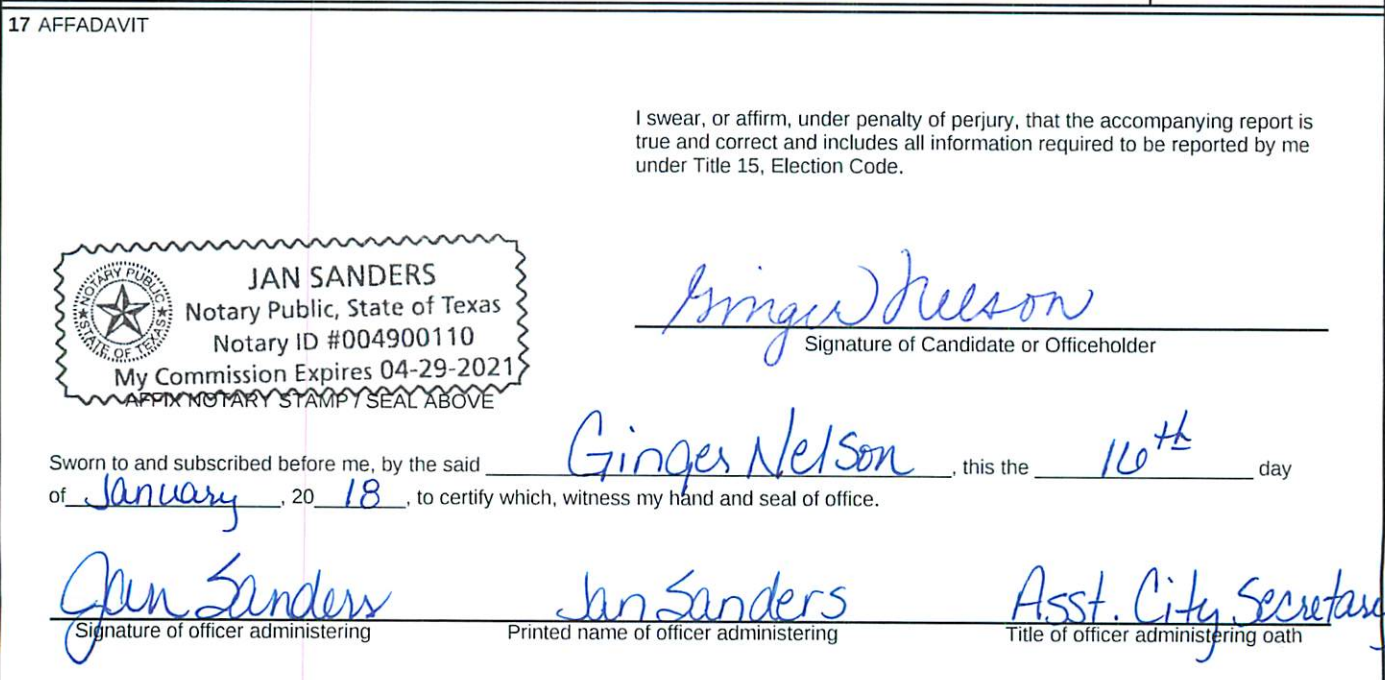 17 AFFADAVIT
I swear, or affirm, under penalty of perjury, that the accompanying report is
true and correct and includes all information required to be reported by me
under Title 15, Election Code.
NOTARY PUBLIC
STATE OF TEXAS
JAN SANDERS
Notary Public, State of Texas
Notary ID #004900110
My Commission Expires 04-29-2021
AFFIX NOTARY STAMP / SEAL ABOVE
Ginger Nelson
Signature of Candidate or Officeholder
Sworn to and subscribed before me, by the said Ginger Nelson, this the 16th day
of January, 20 18, to certify which, witness my hand and seal of office.
Jan Sanders Jan Sanders Asst. City Secretary
Signature of officer administering Printed name of officer administering Title of officer administering oath